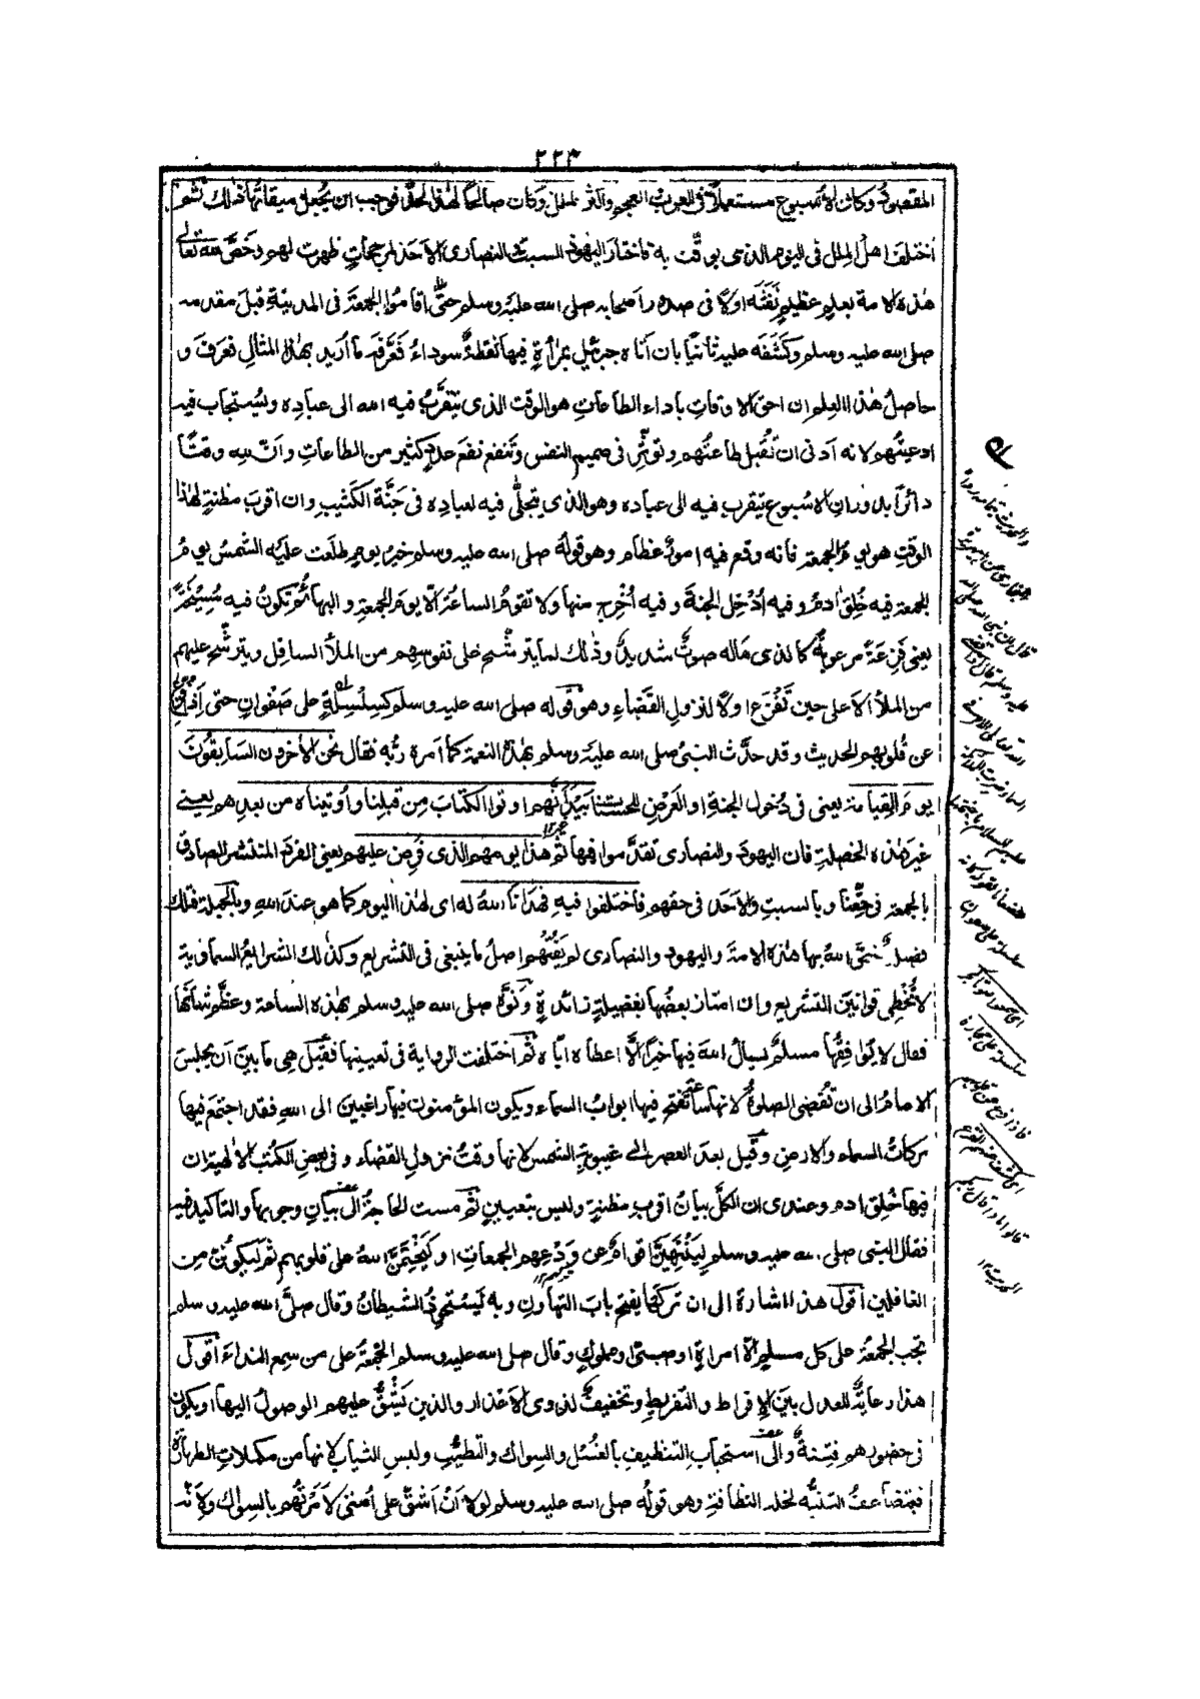 ٢٢٣
المقصود وكان الأسبوع مستعملا في العرب والعجم وأكثر الملل وكان صالحا لهذا الحد فوجب ان يجعل ميقاتها ذلك ثم
اختلف اهل الملل في اليوم الذي يوقت به فاختار اليهود السبت والنصارى الأحد لمرجحات ظهرت لهم وخص الله تعالى
هذه الامة بعلم عظيم نفثه اولا في صدور اصحابه صلى الله عليه وسلم حتى اقاموا الجمعة في المدينة قبل مقدمه
صلى الله عليه وسلم وكشفه عليه ثانيا بان اتاه جبرئيل بمرأة فيها نقطة سوداء فعرفه ما اريد بهذا المثال فعرف و
حاصل هذا العلم ان احق الاوقات باداء الطاعات هو الوقت الذي يتقرب فيه الله الى عباده ويستجاب فيه
ادعيتهم لانه ادنى ان تقبل طاعتهم وتؤثر في صميم النفس وتنفع نفع عدد كثير من الطاعات وان لله وقتا
دائرا بدوران الاسبوع يتقرب فيه الى عباده وهو الذي يتجلى فيه لعباده في جنة الكثيب وان اقرب مظنة لهذا
الوقت هو يوم الجمعة فانه وقع فيه امور عظام وهو قوله صلى الله عليه وسلم خير يوم طلعت عليه الشمس يوم
الجمعة فيه خلق ادم وفيه ادخل الجنة وفيه اخرج منها ولا تقوم الساعة الا يوم الجمعة والبهائم تكون فيه مسيخة
يعني فزعة مرعوبة كالذي هاله صوت شديد وذلك لما يترشح على نفوسهم من الملأ السافل ويترشح عليهم
من الملأ الاعلى حين تفزع اولا لنزول القضاء وهو قوله صلى الله عليه وسلم كسلسلة على صفوان حتى اذا فزع
عن قلوبهم الحديث وقد حدث النبي صلى الله عليه وسلم بهذه النعمة كما امره ربه فقال نحن الأخرون السابقون
يوم القيامة يعني في دخول الجنة او العرض للحساب بيد انهم اوتوا الكتاب من قبلنا واوتيناه من بعدهم يعني
غير هذه الخصلة فان اليهود والنصارى تقدموا فيها ثم هذا يومهم الذي فرض عليهم يعني الفرد المنتشر الصادق
بالجمعة في حقنا وبالسبت والاحد في حقهم فاختلفوا فيه فهدانا الله له اي لهذا اليوم كما هو عند الله وبالجملة فتلك
فضيلة خص الله بها هذه الامة واليهود والنصارى لم يفتهم اصل ما ينبغي في التشريع وكذلك الشرائع السماوية
لا تخطي قوانين التشريع وان امتاز بعضها بفضيلة زائدة ونوه صلى الله عليه وسلم بهذه الساعة وعظم شانها
فقال لا يوافقها مسلم يسأل الله فيها خيرا الا اعطاه اياه ثم اختلفت الرواية في تعيينها فقيل هي ما بين ان يجلس
الامام الى ان تقضى الصلوة لانها ساعة تفتح فيها ابواب السماء ويكون المؤمنون فيها راغبين الى الله فقد اجتمع فيها
بركات السماء والارض وقيل بعد العصر الى غيبوبة الشمس لانها وقت نزول القضاء وفي بعض الكتب الالهية ان
فيها خلق ادم وعندي ان الكل بيان اقرب مظنة وليس بتعيين ثم مست الحاجة الى بيان وجوبها والتاكيد فيه
فقال النبي صلى الله عليه وسلم لينتهين اقوام عن ودعهم الجمعات او ليختمن الله على قلوبهم ثم ليكونن من
الغافلين اقول هذا اشارة الى ان تركها يفتح باب التهاون وبه يستحوذ الشيطان وقال صلى الله عليه وسلم
تجب الجمعة على كل مسلم الا امراة او صبي او مملوك وقال صلى الله عليه وسلم الجمعة على من سمع النداء اقول
هذا رعاية للعدل بين الافراط والتفريط وتخفيف لذوي الاعذار والذين يشق عليهم الوصول اليها او يكون
في حضورهم فتنة والى استحباب التنظيف بالغسل والسواك والتطيب ولبس الثياب لانها من مكملات الطهارة
فيتضاعف التنبه لخلة النظافة وهو قوله صلى الله عليه وسلم لولا ان اشق على امتي لامرتهم بالسواك ولانه